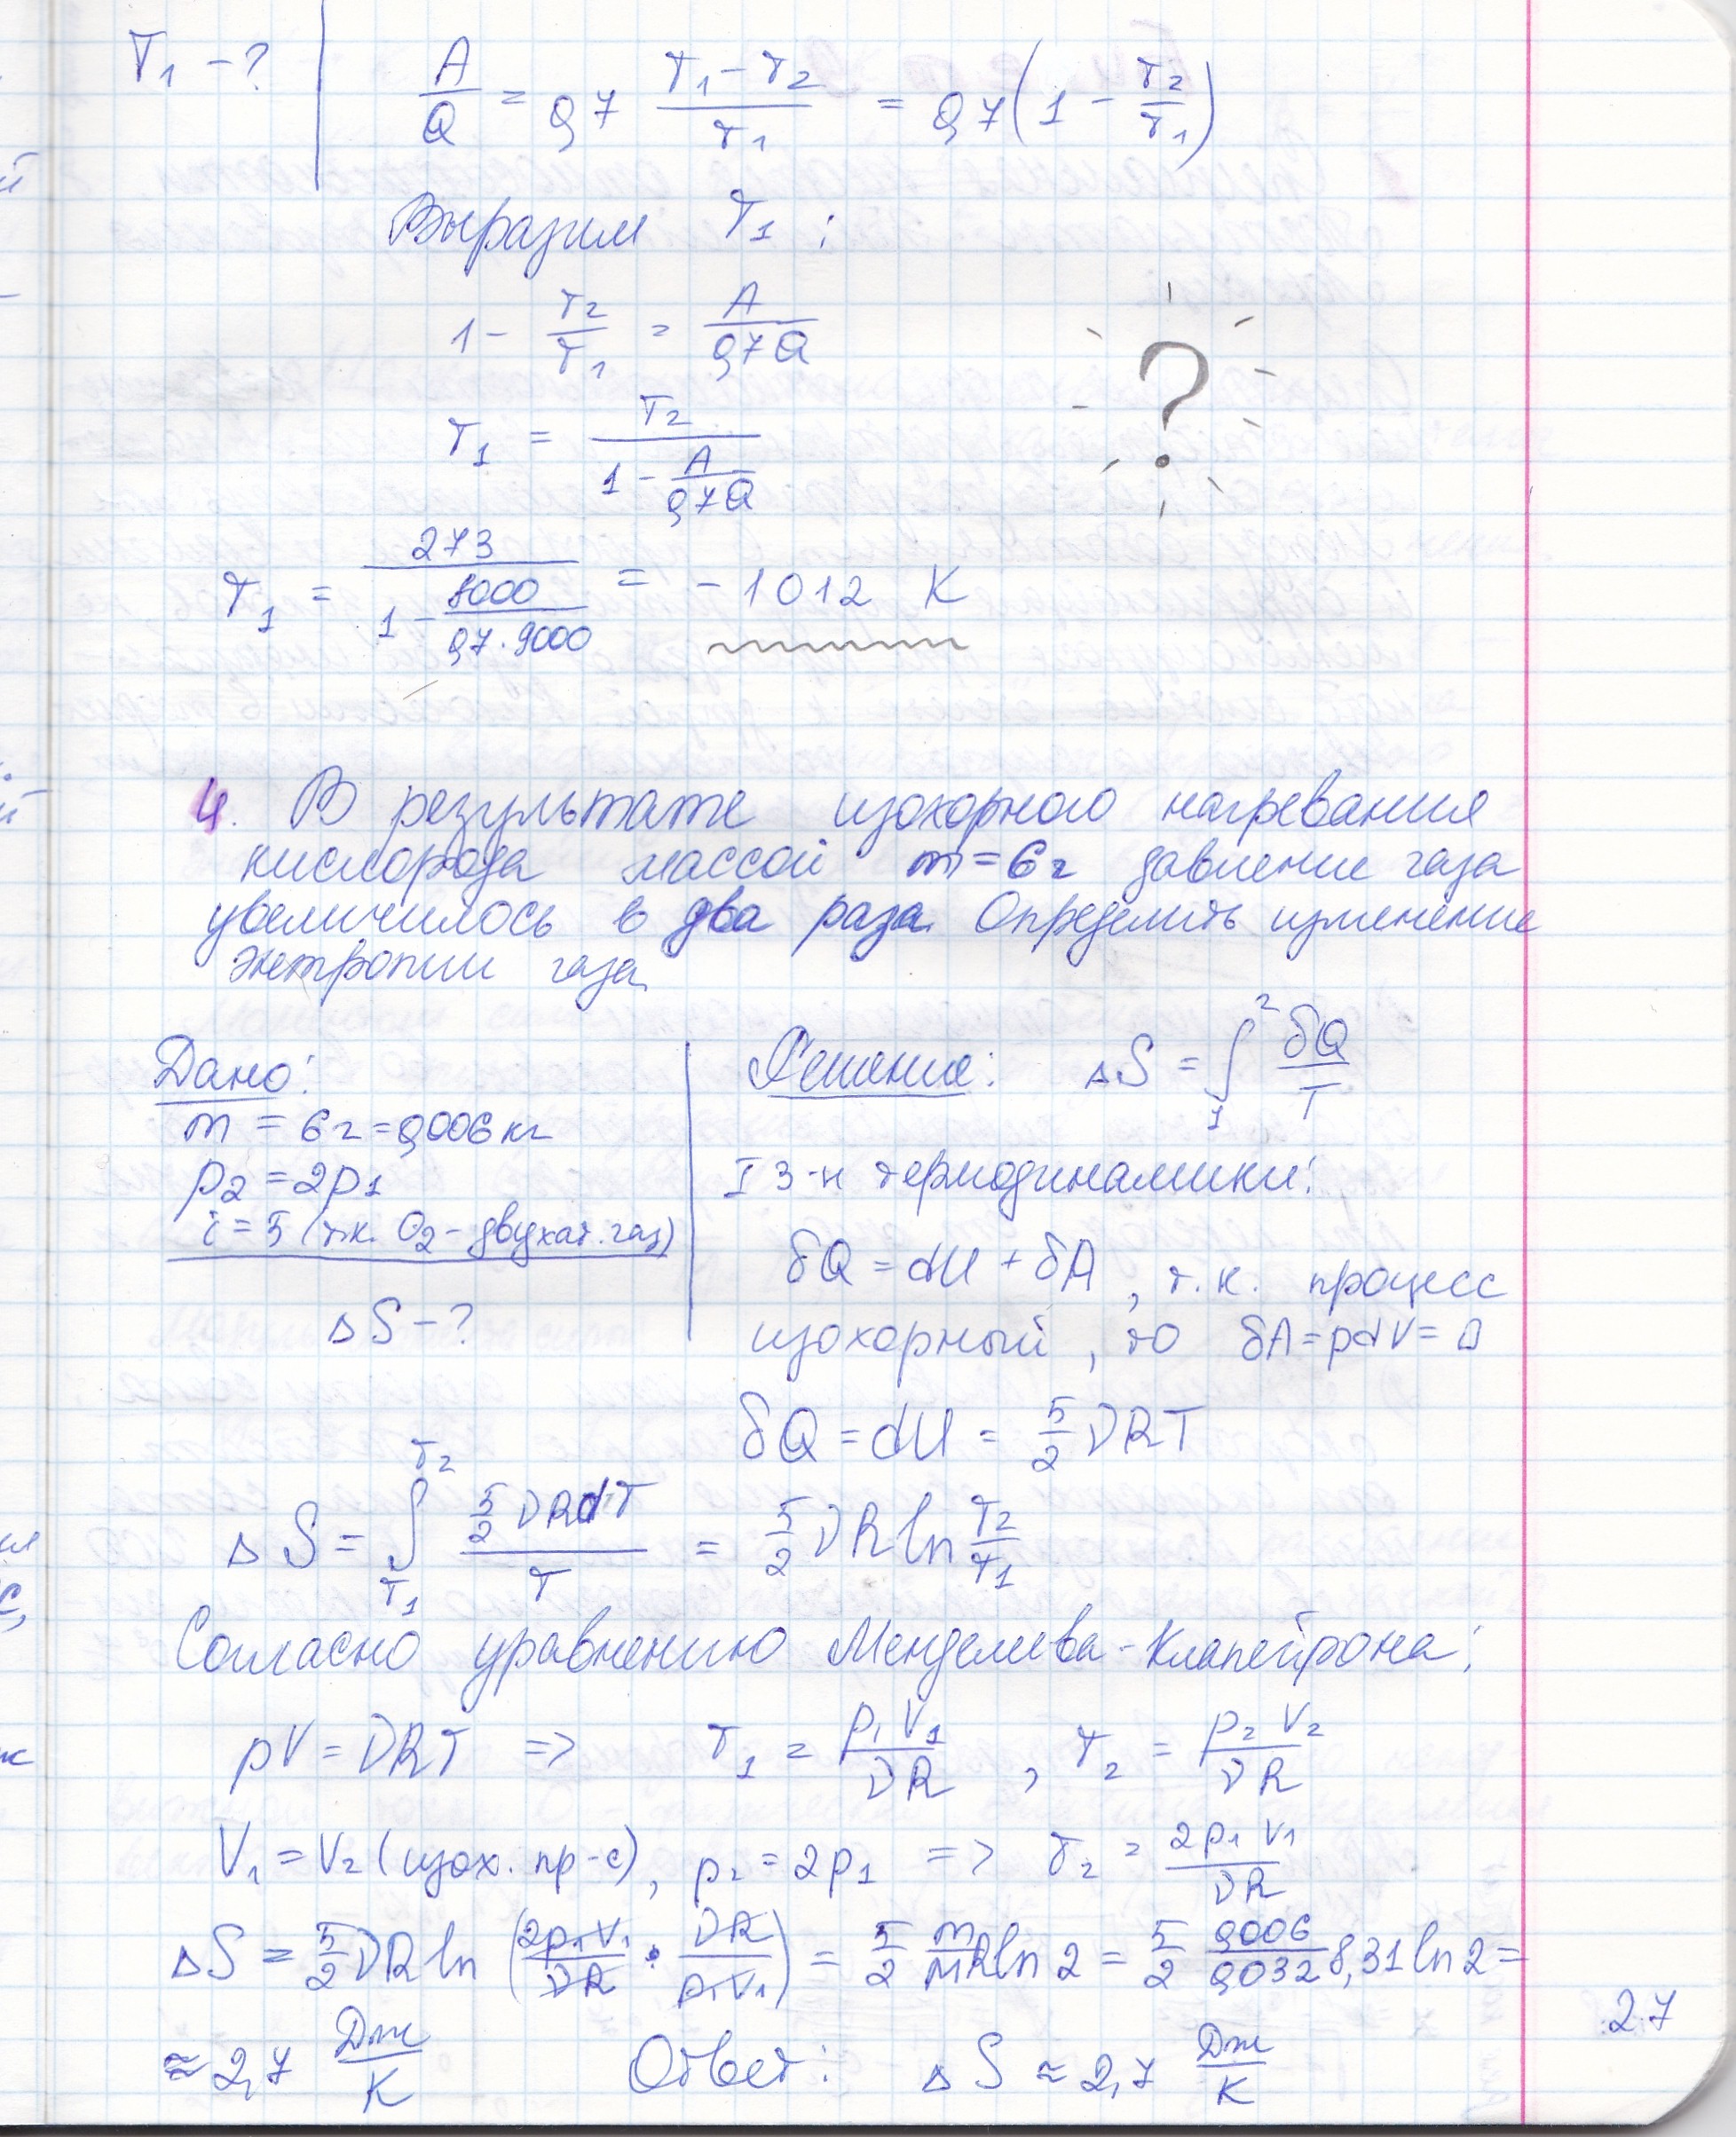 T₁ - ?
A/Q = 0,7 (T₁ - T₂)/T₁ = 0,7 (1 - T₂/T₁)
Выразим T₁ :
1 - T₂/T₁ = A/(0,7Q)
?
T₁ = T₂/(1 - A/(0,7Q))
T₁ = 273/(1 - 8000/(0,7·9000)) = - 1012 К
4. В результате изохорного нагревания
кислорода массой m = 6 г давление газа
увеличилось в два раза. Определить изменение
энтропии газа
Дано:
m = 6 г = 0,006 кг
p₂ = 2p₁
i = 5 (т.к. O₂ - двухат. газ)
ΔS - ?
Решение: ΔS = ∫₁² δQ/T
I з-н термодинамики:
δQ = dU + δA, т.к. процесс
изохорный, то δA = pdV = 0
δQ = dU = 5/2 νRT
ΔS = ∫_{T₁}^{T₂} (5/2 νRdT)/T = 5/2 νR ln T₂/T₁
Согласно уравнению Менделеева-Клапейрона:
pV = νRT => T₁ = p₁V₁/νR , T₂ = p₂V₂/νR
V₁ = V₂ (изох. пр-с), p₂ = 2p₁ => T₂ = 2p₁V₁/νR
ΔS = 5/2 νR ln (2p₁V₁/νR · νR/p₁V₁) = 5/2 m/M R ln 2 = 5/2 0,006/0,032 8,31 ln 2 =
≈ 2,7 Дж/К Ответ: ΔS ≈ 2,7 Дж/К
2.7